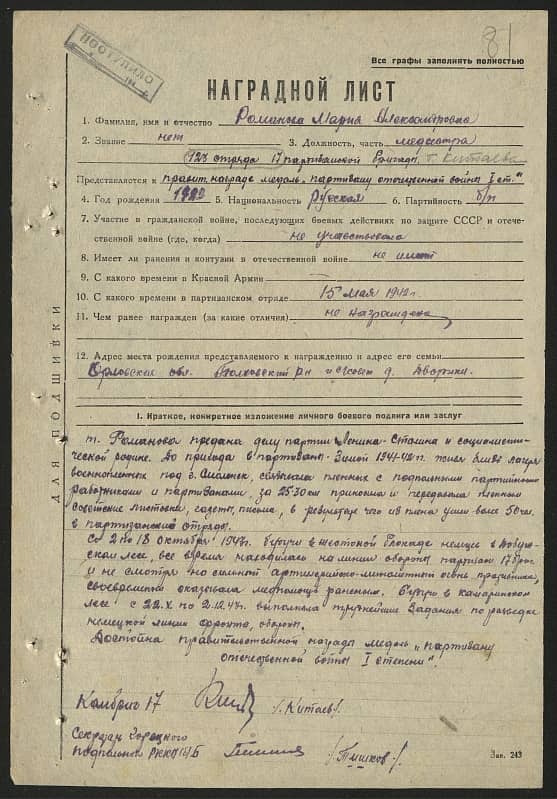 81
ПОСТУПИЛО
Все графы заполнять полностью
НАГРАДНОЙ ЛИСТ
1. Фамилия, имя и отчество Романова Мария Александровна
2. Звание нет 3. Должность, часть медсестра
123 отряда 17 партизанской бригады т. Китаева
Представляется к правит. награде медаль „партизану отечественной войны I ст."
4. Год рождения 5. Национальность Русская 6. Партийность б/п
7. Участие в гражданской войне, последующих боевых действиях по защите СССР и отече-
ственной войне (где, когда) не участвовала
8. Имеет ли ранения и контузии в отечественной войне не имеет
9. С какого времени в Красной Армии
10. С какого времени в партизанском отряде 15 мая 1942 г
11. Чем ранее награжден (за какие отличия) не награждена
12. Адрес места рождения представляемого к награждению и адрес его семьи
Орловская обл. Болховский р-н д. Дворики.
ДЛЯ ПОДШИВКИ
I. Краткое, конкретное изложение личного боевого подвига или заслуг
т. Романова предана делу партии Ленина-Сталина и социалисти-
ческой родине. До прихода в партизаны зимой 1941-42 г. жила близ лагеря
военнопленных под г. Смоленск, связывала пленных с подпольными партийными
работниками и партизанами, за 25-30 км приносила и передавала пленным
советские листовки, газеты, письма, в результате чего из плена ушли более 50 чел.
в партизанские отряды.
Со 2 по 18 октября 1943 г. будучи в жестокой блокаде немцев в
лесе, все время находилась на линии обороны партизан 17 бриг.
и не смотря на сильный артиллерийско-минометный огонь противника,
своевременно оказывала медпомощь раненым. Будучи в
лесе с 22.X по 2.12.43 г. выполняла труднейшие задания по разведке
немецкой линии фронта, обороны.
Достойна правительственной награды медаль „партизану
отечественной войны I степени".
Комбриг 17 /Китаев/.
Секретарь
подпольного РККП(б)Б /Тишков/.
Зак. 243